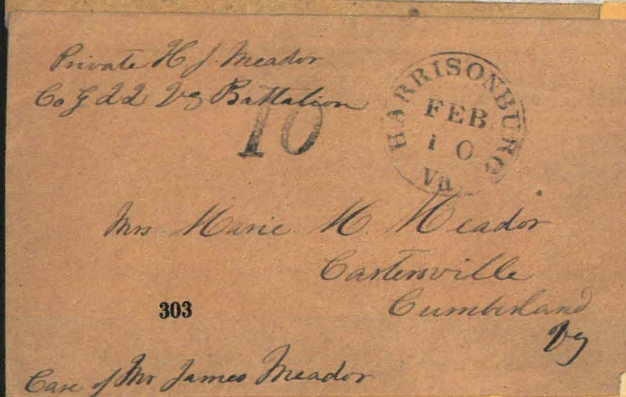 Private H J. Meador
Co G 22 Va Battalion
10
HARRISONBURG
FEB
10
Va
Mrs Marie M. Meador
Cartersville
Cumberland
Va
303
Care of Mr James Meador